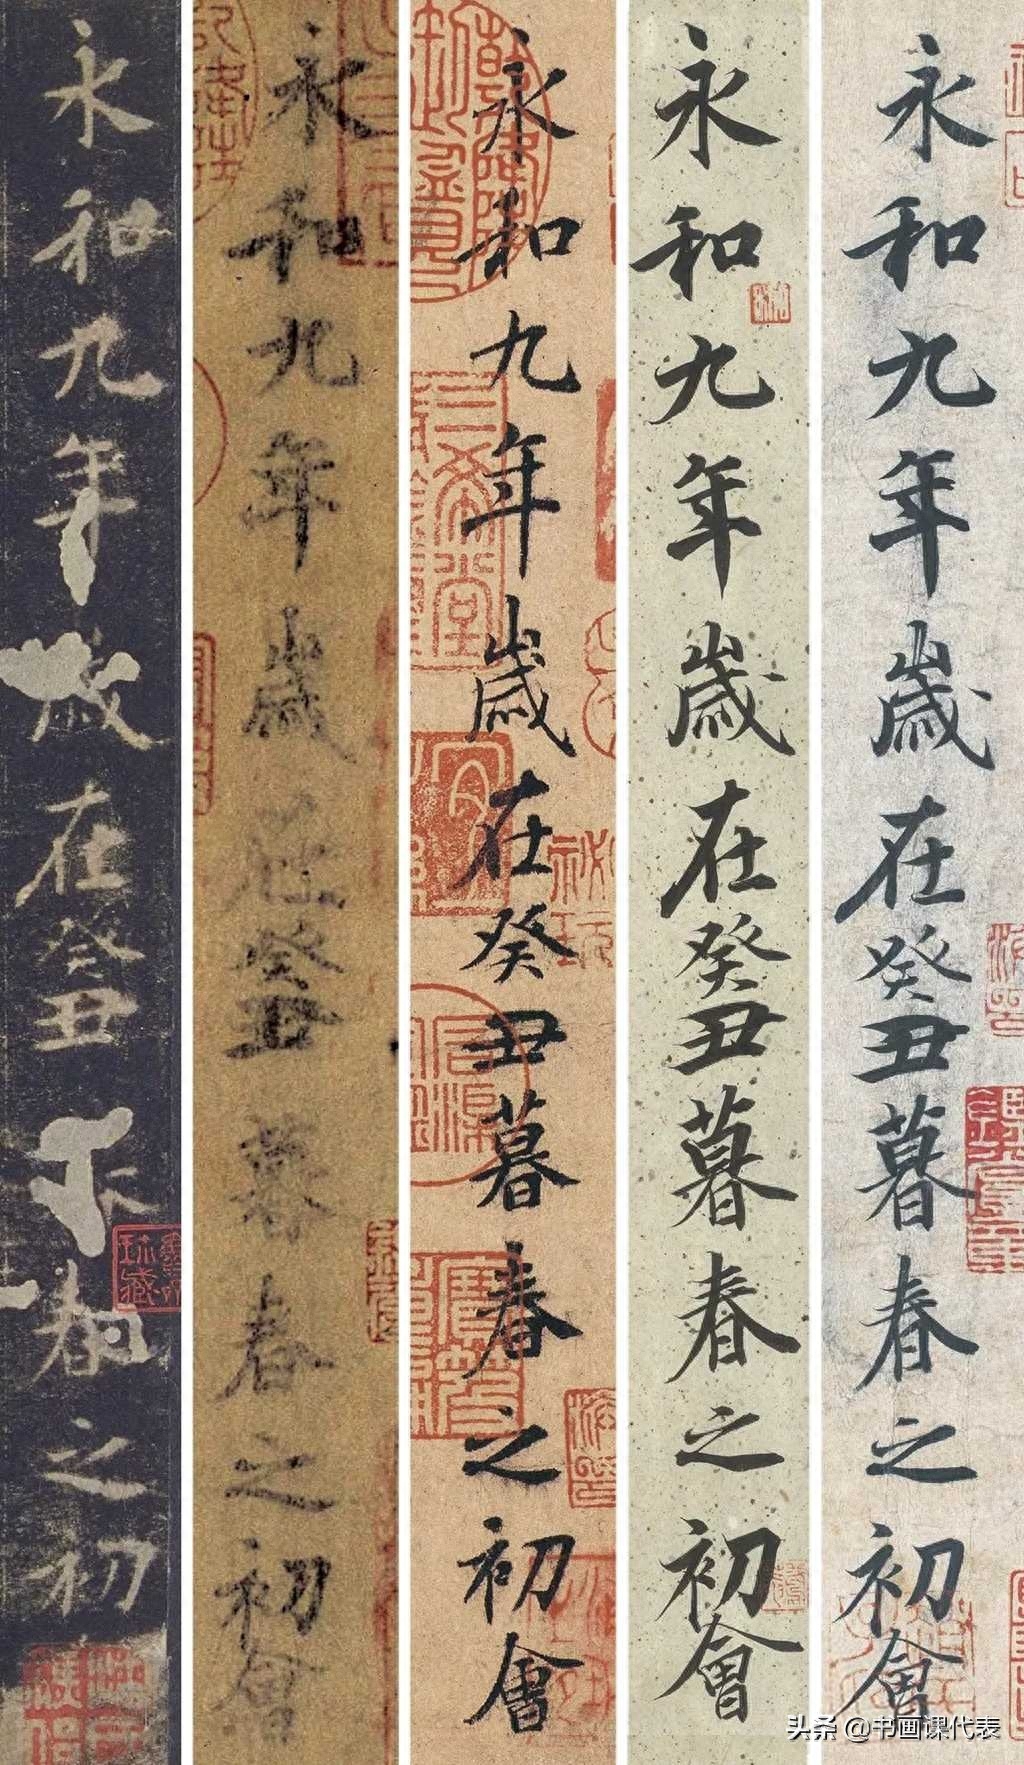 永和九年歲在癸丑春之初
永和九年歲在癸丑暮春之初會
永和九年歲在癸丑暮春之初會
永和九年歲在癸丑暮春之初會
永和九年歲在癸丑暮春之初會
三希堂
头条 @书画课代表